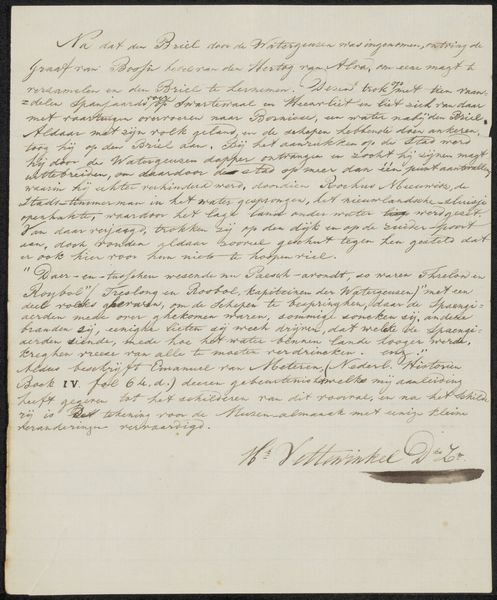 Na dat den Briel door de Watergeuzen was ingenomen, ontving de
Graaf van Bossu bevel van den Hertog van Alva, om eene magt te
verzamelen en den Briel te hernemen. Dezen trok met tien van-
=delen Spanjaards over Swartewaal en Heenvliet en liet zich van daar
met vaartuigen overvoeren naar Bornisse, een water nabij den Briel.
Aldaar met zijn volk geland, en de schepen hebbende doen ankeren,
toog hij op den Briel aan, Bij het aanrukken op de Stad werd
hij door de Watergeuzen dapper ontvangen en zocht hij zijnen magt
uittebreiden, om daardoor de stad op meer dan één punt aantevallen,
waarin hij echter verhinderd werd, doordien Rochus Meeuwisz, de
Stads-timmerman in het water gesprongen, het nieuwlandsche sluisje
openhakte, waardoor het lage land onder water werd gezet.
Van daar verjaagd, trokken zij op den dijk en op de zuider-poort
aan, doch vonden aldaar zooveel geschut tegen hen gesteld dat
er ook hier voor hem niets te hoopen viel.
"Daer-en-tusschen wesende nu Paesch-avondt, so waren Threlon en
Roybol" (Treslong en Roobol, kapiteinen der Watergeuzen) "met een
deel volks gevaren, om de Schepen te bespringhen, daar de Spaengi-
aerden mede over ghekomen waren, sommige soncken zij, andere
branden zij, eenighe lieten zij wech drijven, dat welcke de Spaengi-
aerden siende, mede hoe het water binnen lande hooger werde,
kreghen vreese van alle te moeten verdrincken. enz."
Aldus beschrijft Emanuel van Meteren, (Nederl. Historien
Boek IV. fol 64. d.) dezen gebeurtenis welke mij aanleiding
heeft gegeven tot het schilderen van dit voorval, en na het schilde
rij is tekening voor de Muzen-almanak met eenig klein
veranderingen vervaardigd.
Hk Vettewinkel Dz